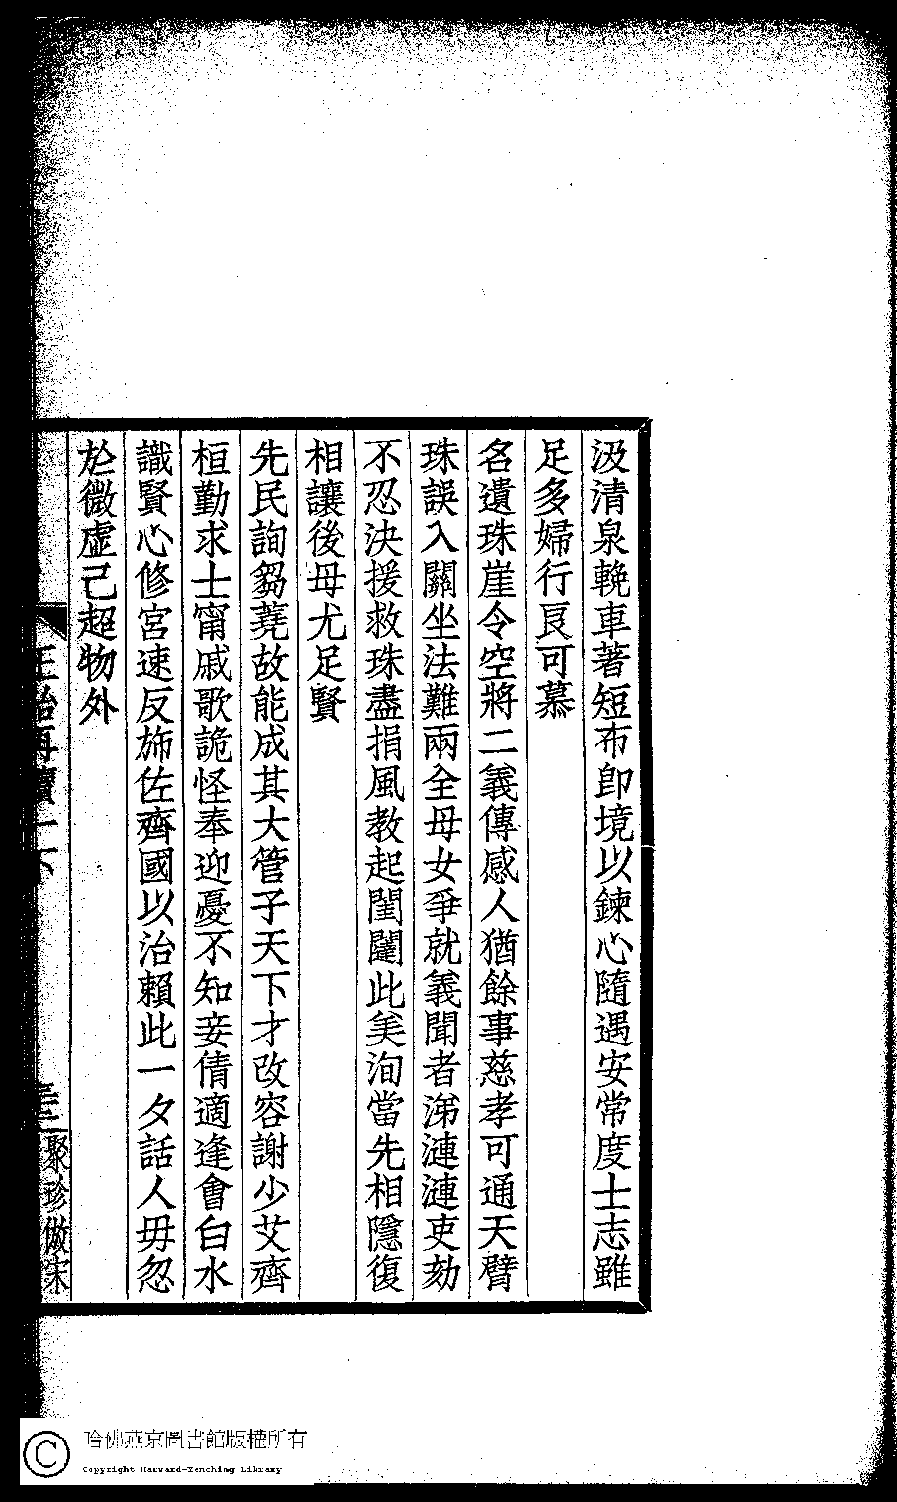 汲清泉輓車著短布卽境以鍊心隨遇安常度士志雖
足多婦行良可慕
名遺珠崖令空將二義傳感人猶餘事慈孝可通天臂
珠誤入關坐法難兩全母女爭就義聞者涕漣漣吏劾
不忍決援救珠盡捐風敎起閨闥此美洵當先相隱復
相讓後母尤足賢
先民詢芻蕘故能成其大管子天下才改容謝少艾齊
桓勤求士甯戚歌詭怪奉迎憂不知妾倩適逢會白水
識賢心修宮速反斾佐齊國以治賴此一夕話人毋忽
於微虛己超物外
聚珍倣宋
哈佛燕京圖書館版權所有
Copyright Harvard-Yenching Library